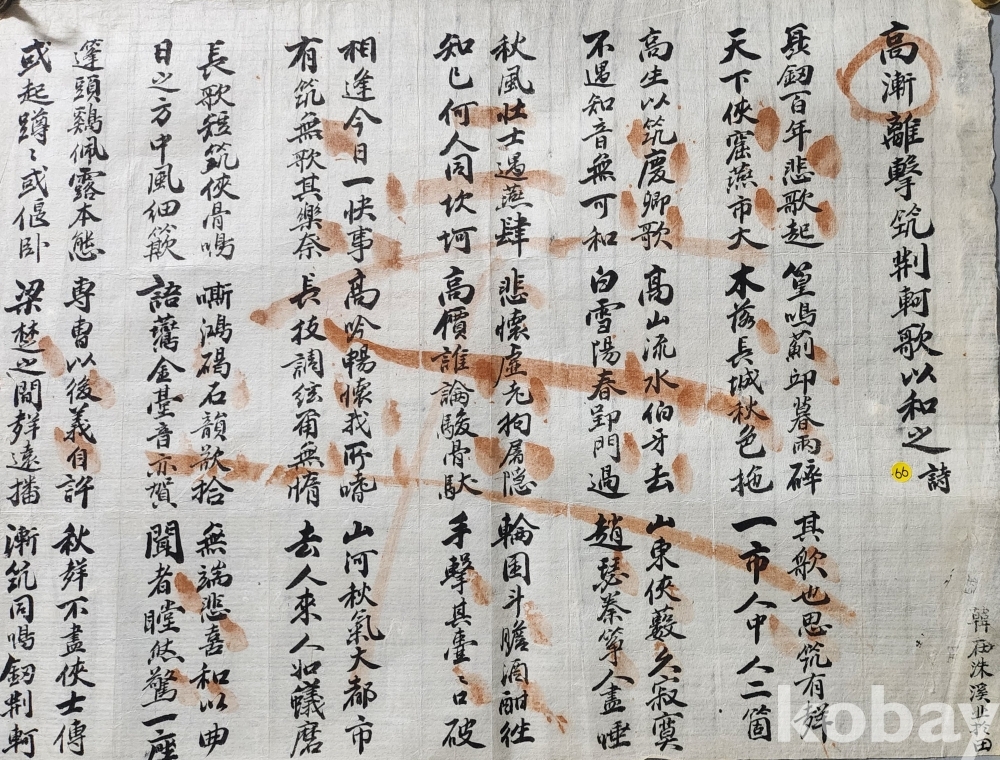 高漸離擊筑荊軻歌以和之 詩
66
聶釼百年悲歌起 篁鳴薊邱暮雨碎 其歌也思筑有聲
天下俠窟燕市大 木落長城秋色拖 一市人中人二箇
高生以筑慶卿歌 高山流水伯牙去 山東俠藪久寂寞
不遇知音無可和 白雪陽春郢門過 趙瑟秦箏人盡唾
秋風壯士過燕肆 悲懷虛老狗屠隱 輪囷斗膽酒酣往
知己何人同坎坷 高價誰論駿骨馱 手擊其壺〻口破
相逢今日一快事 高吟暢懷我所嗜 山河秋氣大都市
有筑無歌其樂奈 長技調絃爾無惰 去人來人如蟻磨
長歌短筑俠骨鳴 嘶鴻碣石韻歌拾 無端悲喜和以曲
日之方中風細簸 語鷰金臺音亦賀 聞者瞠然驚一座
蓬頭鷄佩露本態 專曺以後義自許 秋聲不盡俠士傳
或起蹲〻或偃臥 梁楚之間聲遠播 漸筑同鳴釼荊軻
kobay